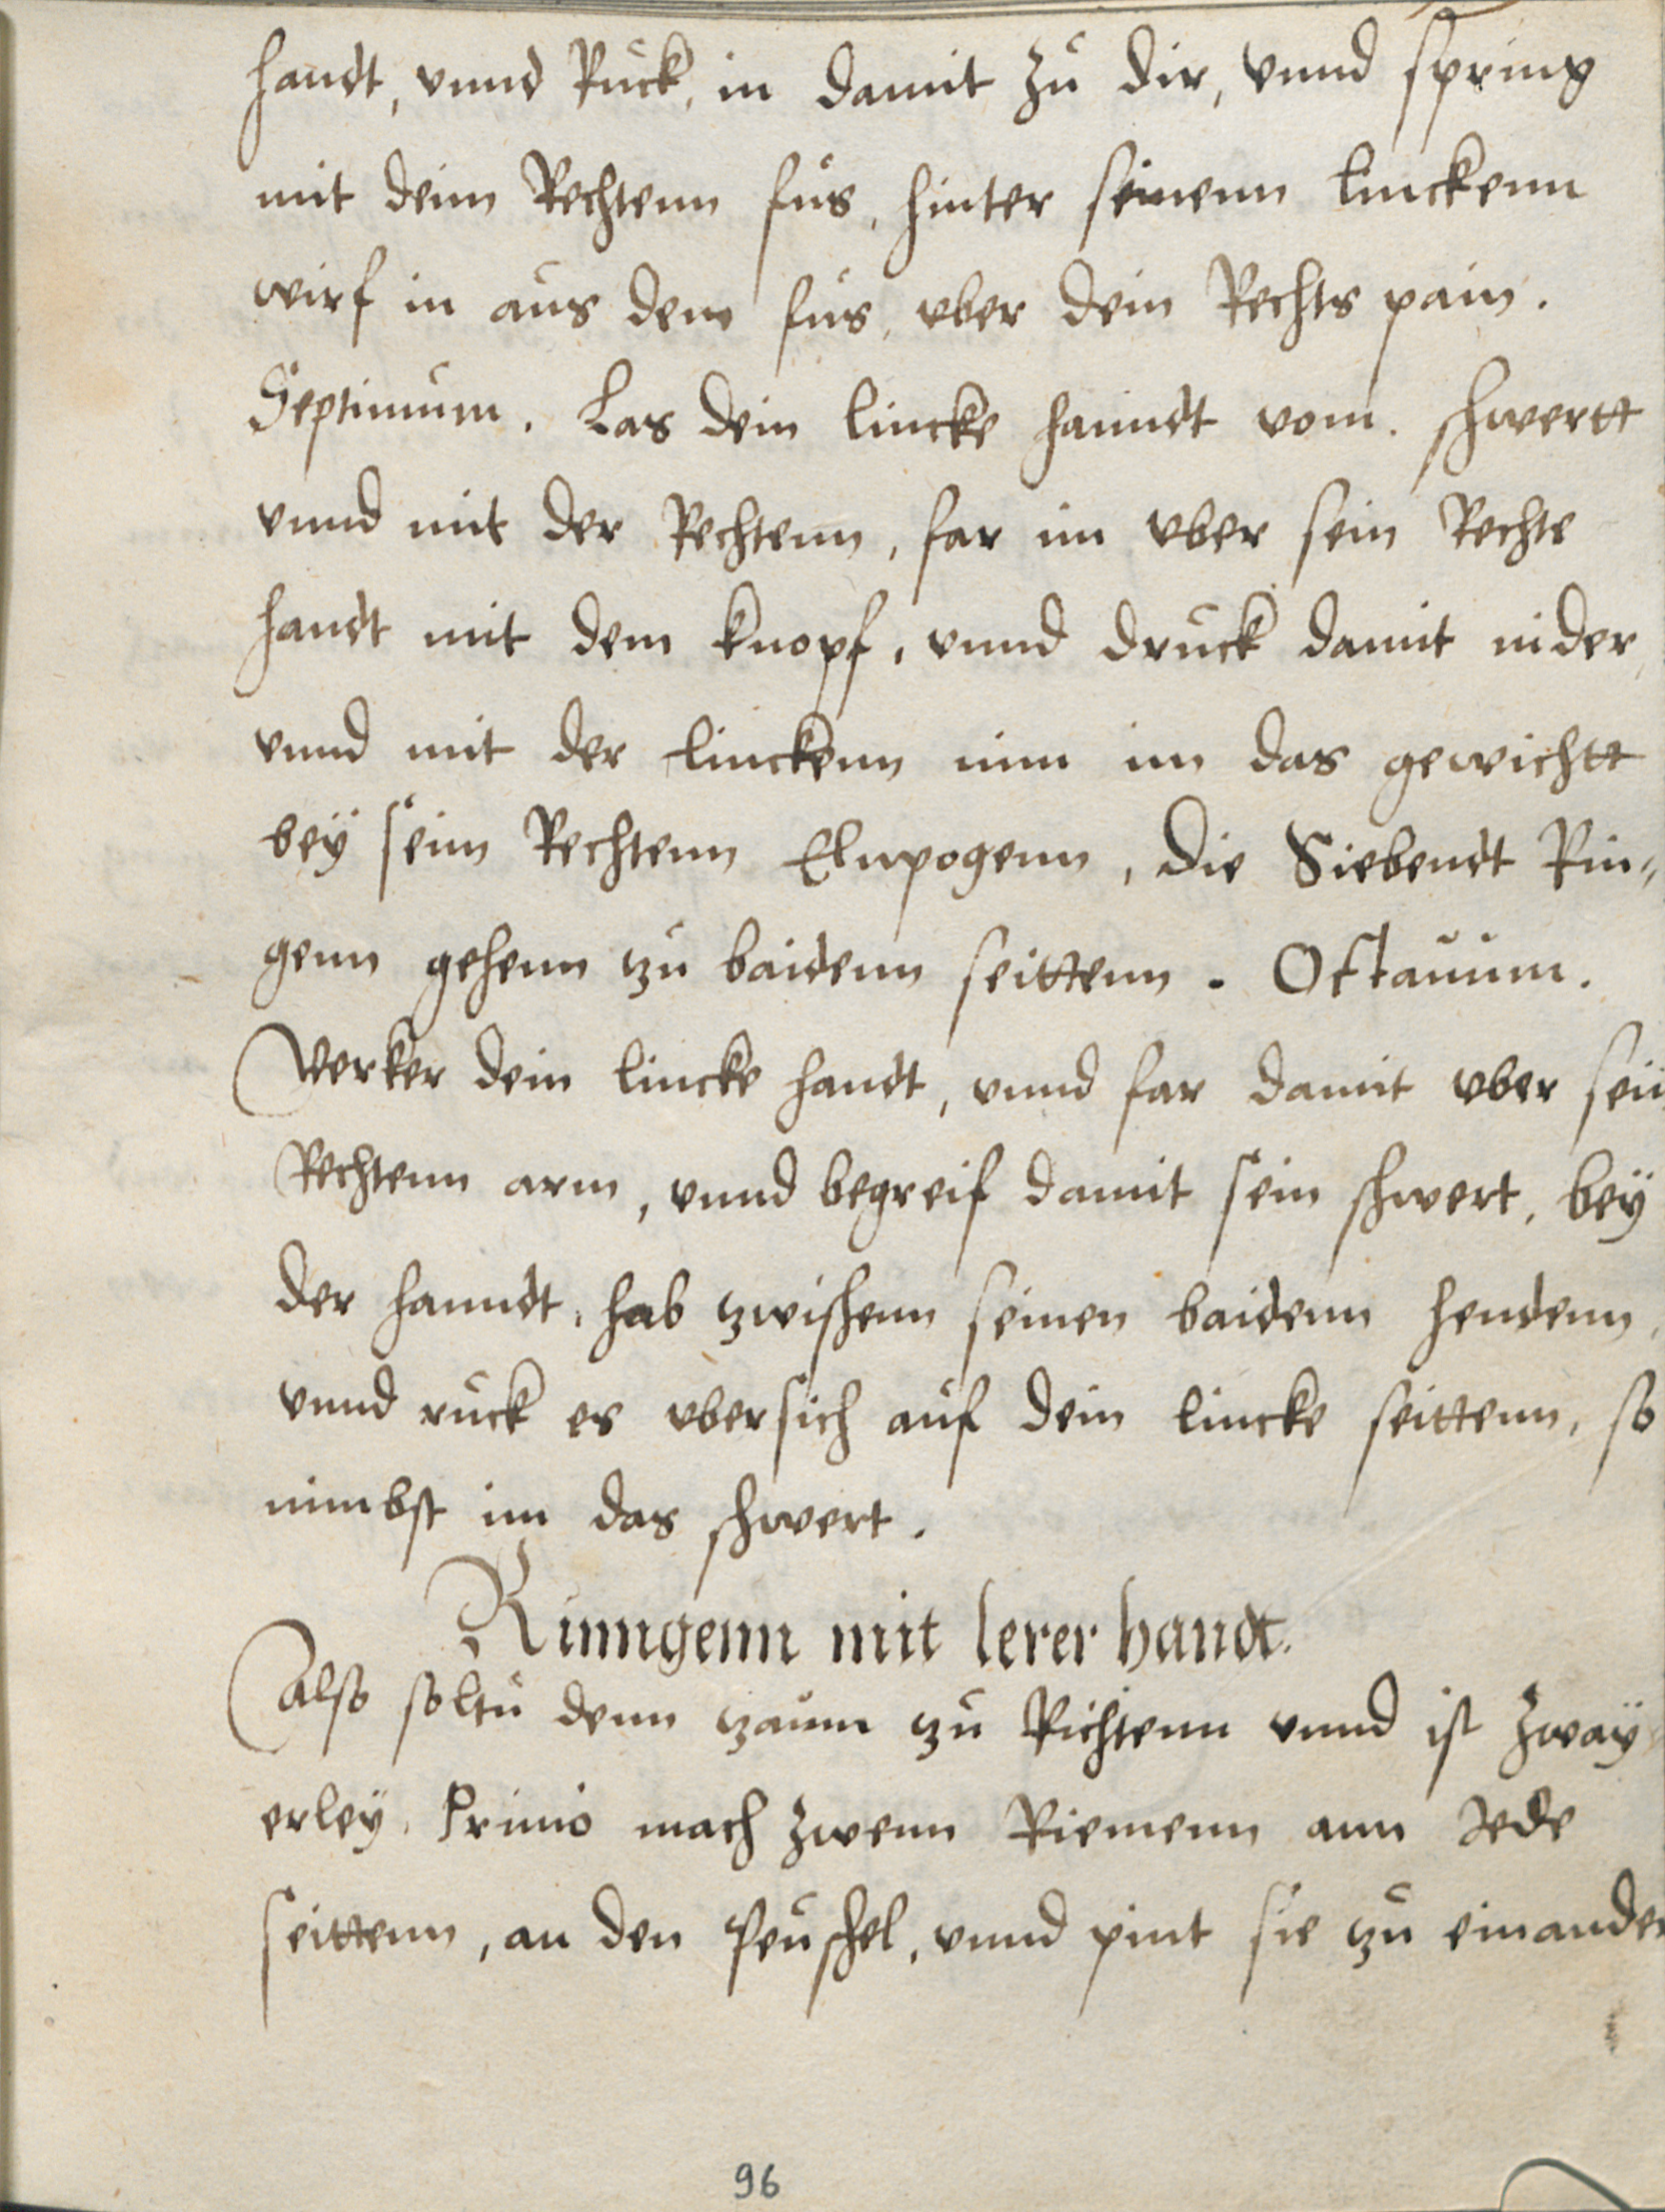 handt, vnnd Rück, in damit zü dir, vnnd spring
mit deim Rechtenn füs, hinter seinenn linckenn
wirf in aüs dem füs, vber dein Rechts pain.
Septimüm. Las dein lincke hanndt vom. schwertt
vnnd mit der Rechtenn, far im vber sein Rechte
handt mit dem knopf, vnnd drück damit nider,
vnnd mit der linckenn nim im das gewichtt
beÿ seim Rechtenn Elnpogenn, Die Siebendt Rin„
genn gehenn zü baidenn seittenn. Octauüm.
Verker dein lincke handt, vnnd far damit vber sein
Rechtenn arm, vnnd begreif damit sein schwert, beÿ
der hanndt, hab zwischenn seinen baidenn hendenn,
vnnd rück es vbersich aüf dein lincke seittenn, so
nimbst im das schwert.
Rinngenn mit lerer handt.
Also soltü denn zaüm zü Richtenn vnnd ist zwaÿ
erleÿ. Primo mach zwenn Riemenn ann Jede
seittenn, an den Peüschel, vnnd pint sie zü einander
96